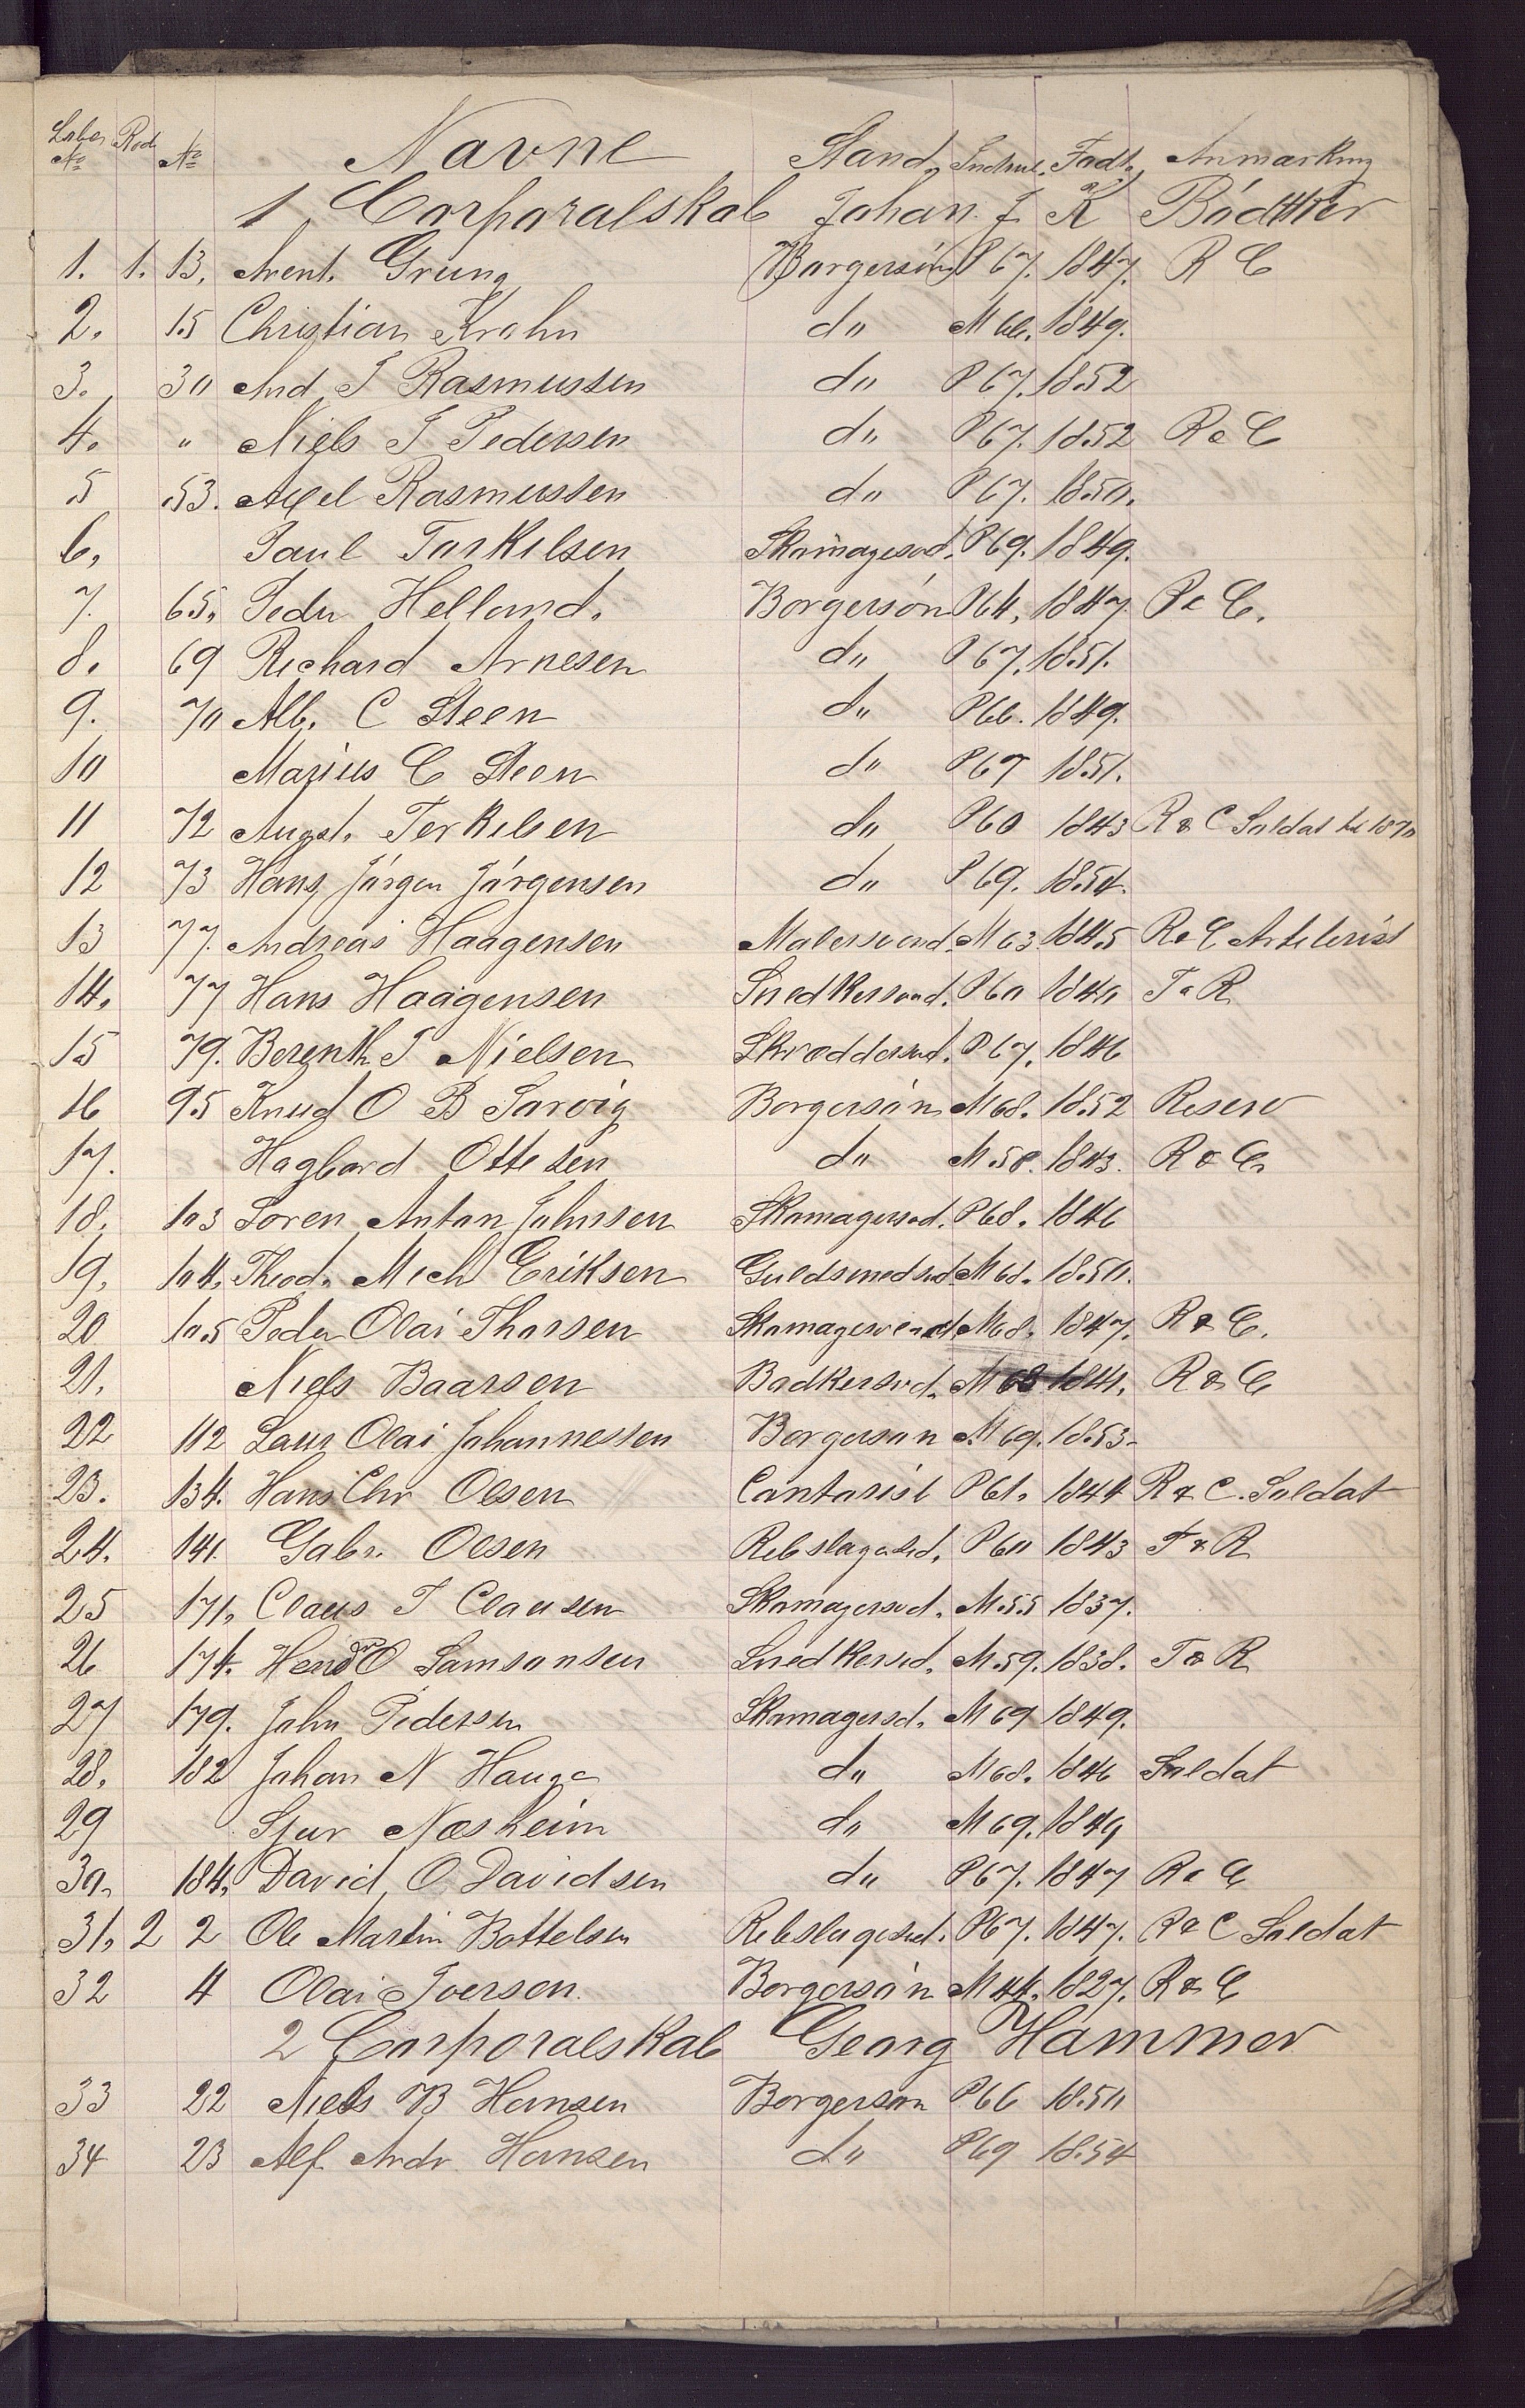 Løbe No Rod No Navne Stand. Indrul. Født. Anmærkning
1 Corporalskab Johan. J. K Bødtker
1. 1. 13. Arent. Grung Borgersøn P 67. 1847. R C
2. 15 Christian Krohn d" M 66. 1849.
3. 30 And J Rasmussen d" P 67. 1852
4. " Niels J Pedersen d" P 67. 1852 R & C
5 53. Axel Rasmussen d" P 67. 1850.
6. Paul Torkilsen Skomagersvd. P 69. 1849.
7. 65. Peder Helland. Borgersøn P 64. 1847 R & C.
8. 69 Richard Arnesen d" P 67. 1851.
9. 70 Alb. C Steen d" P 66. 1849.
10 Marius C Steen d" P 67 1851.
11 72 Augst. Terkelsen d" P 60 1843 R & C Soldat til 1870
12 73 Hans Jørgen Jørgensen d" P 69. 1854.
13 77. Andreas Haagensen Malersvend. M 63. 1845 R & C Artelerist
14. 77 Hans Haagensen Snedkersvend. P 60 1840 F & R
15 79. Berenth J Nielsen Skræddersvd. P 67. 1846
16 95 Knud O B Sarvig Borgersøn M 68. 1852 Reserv
17. Hagbard Ottesen d" M 58. 1843. R & C.
18. 103 Søren Anton Johnsen Skomagersvd. P 68. 1846
19. 104. Theod. Mich Eriksen Guldsmedsvd. M 68. 1850.
20 105 Peder Olai Thorsen Skomagersvend M 68. 1847. R & C.
21. Niels Baarsen Bødkersvd. M 68 1841. R & C
22 112 Laur Olai Johannessen Borgersøn M 69. 1853.
23. 134. Hans Chr Olsen Contorist P 61. 1844 R & C. Soldat
24. 141. Gabr. Olsen Rebslagersvd. P 60 1843 F & R
25 171. Claus J Clausen Skomagersvd. M 55 1837.
26 174. Hendr O Samsonsen Snedkersvd. M 59. 1838. F & R
27 179. John Pedersen Skomagersvd. M 69 1849.
28. 182 Johan N Hauge d" M 68. 1846 Soldat
29 Sjur Næsheim d" M 69. 1849
30. 184. David O Davidsen d" P 67. 1847 R & C
31. 2 2 Ole Martin Bottelsen Rebslagersvd. P 67. 1847. R & C Soldat
32 4 Olai Iversen. Borgersøn M 44. 1827. R & C
2 Corporalskab Georg Hammer
33 22 Niels B Hansen Borgersøn P 66 1850
34 23 Alf Andr. Hansen d" P 69 1854